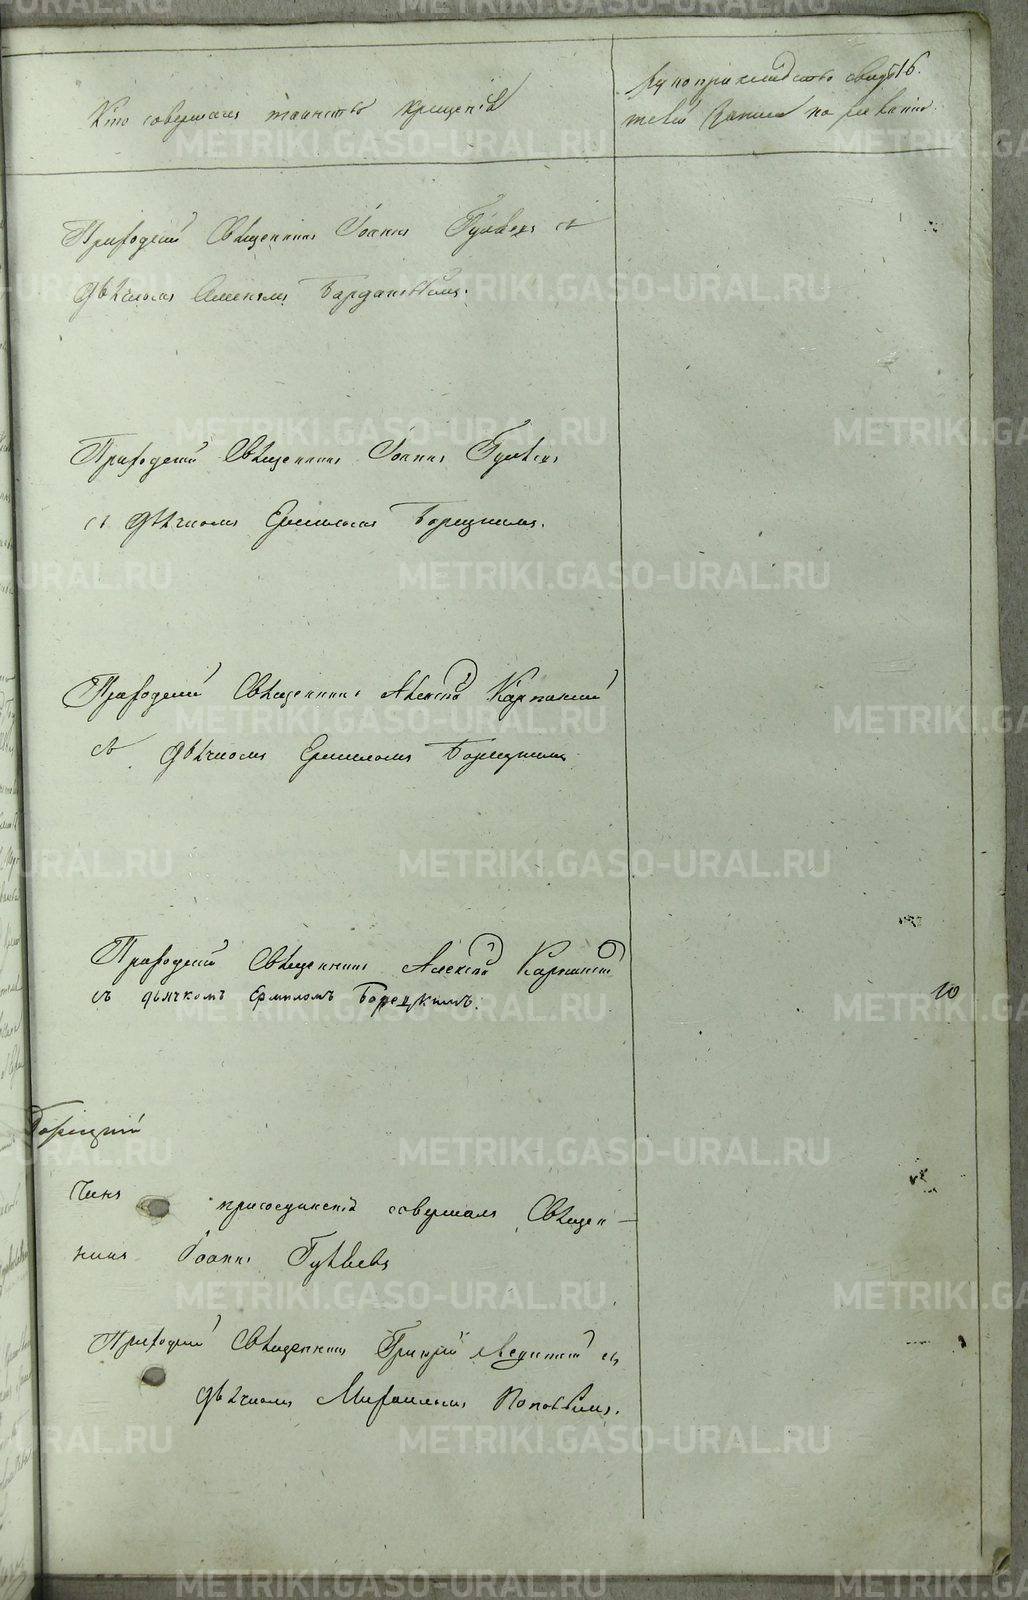 Кто совершалъ таинство крещенія
Рукоприкладство свидѣ 16.
телей записи по желанію.
Приходскій Священникъ Іоаннъ Гуляевъ съ
дьячкомъ
Приходскій Священникъ Іоаннъ Гуляевъ
съ дьячкомъ Ермиломъ Борецкимъ.
Приходскій Священникъ Алексѣй Карпинскій
съ дьячкомъ Ермиломъ Борецкимъ.
Приходскій Священникъ Алексѣй Карпинскій
съ дьячкомъ Ермиломъ Борецкимъ.
10
Борецкій
Чинъ присоединенія совершалъ Священ-
никъ Іоаннъ Гуляевъ
Приходскій Священникъ Григорій съ
дьячкомъ Михаиломъ Поповымъ.
METRIKI.GASO-URAL.RU